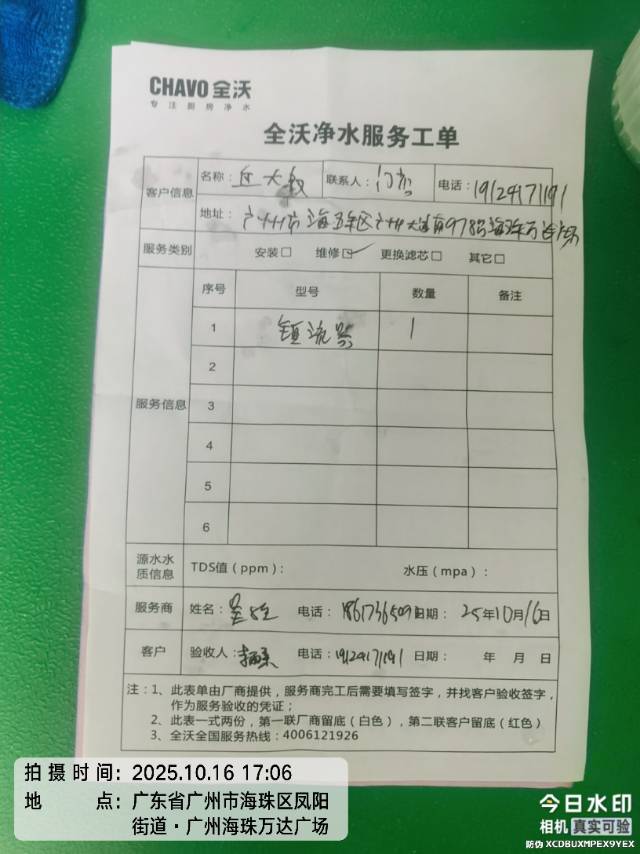 CHAVO全沃
专注厨房净水
全沃净水服务工单
客户信息
名称： 大叔 联系人： 门店 电话：19124171191
地址： 广州市海珠区广州大道南978号海珠万达广场
服务类别 安装□ 维修☑ 更换滤芯□ 其它□
服务信息
序号 型号 数量 备注
1 镇流器 1
2
3
4
5
6
源水水质信息 TDS值（ppm）： 水压（mpa）：
服务商 姓名： 电话： 日期： 25年10月16日
客户 验收人： 电话：19124171191 日期： 年 月 日
注：1、此表单由厂商提供，服务商完工后需要填写签字，并找客户验收签字，
作为服务验收的凭证；
2、此表一式两份，第一联厂商留底（白色），第二联客户留底（红色）
3、全沃全国服务热线：4006121926
拍摄时间：2025.10.16 17:06
地点：广东省广州市海珠区凤阳
街道·广州海珠万达广场
今日水印
相机 真实可验
防伪 XCDBUXMPEX9YEX